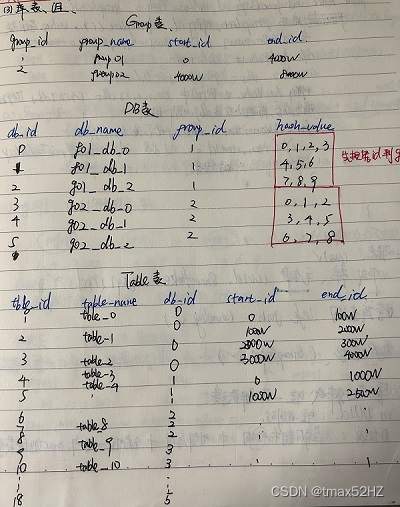 (3) 库表、组
Group表
group_id group_name start_id end_id
1 group01 0 4000W
2 group02 4000W 8000W
DB表
db_id db_name group_id hash_value
0 g01_db_0 1 0,1,2,3
1 g01_db_1 1 4,5,6
2 g01_db_2 1 7,8,9
3 g02_db_0 2 0,1,2
4 g02_db_1 2 3,4,5
5 g02_db_2 2 6,7,8
Table表
table_id table_name db_id start_id end_id
1 table_0 0 0 1000W
2 table_1 0 1000W 2000W
3 table_2 0 2000W 3000W
4 table_3 0 3000W 4000W
5 table_4 1 0 1000W
1 1000W 2500W
6 2
7 table_8 2
8 2
9 table_9 3
10 table_10 3
18 5
CSDN @tmax52HZ